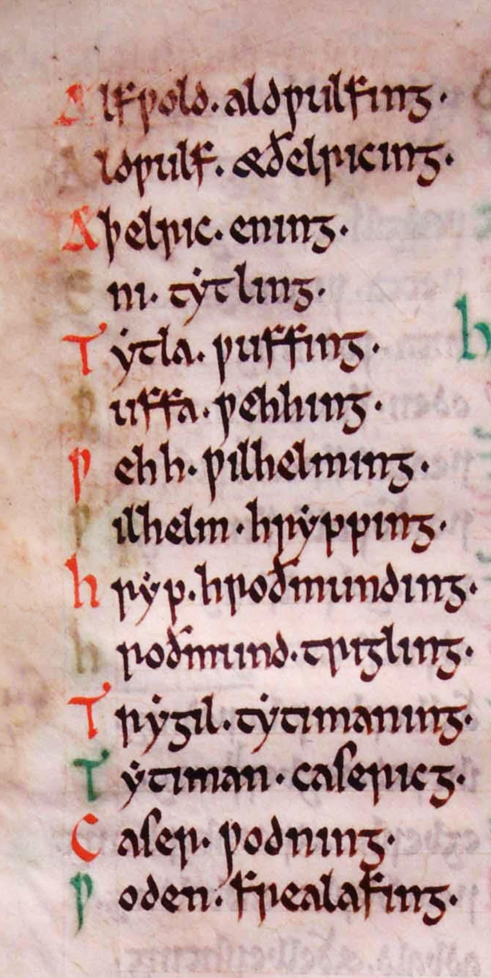 Alfƿold· aldƿulfing·
Aldƿulf· æðelricing·
Aþelric· ening·
Eni· tẏtling·
Tẏtla· ƿuffing·
Ƿuffa· ƿehhing·
Ƿehh· ƿilhelming·
Ƿilhelm· hrẏpping·
hrẏp· hroðmunding·
hroðmund· trigling·
Trẏgil· tẏtimaning·
Tẏtiman· casericg·
Caser· ƿodning·
Ƿoden· frealafing·